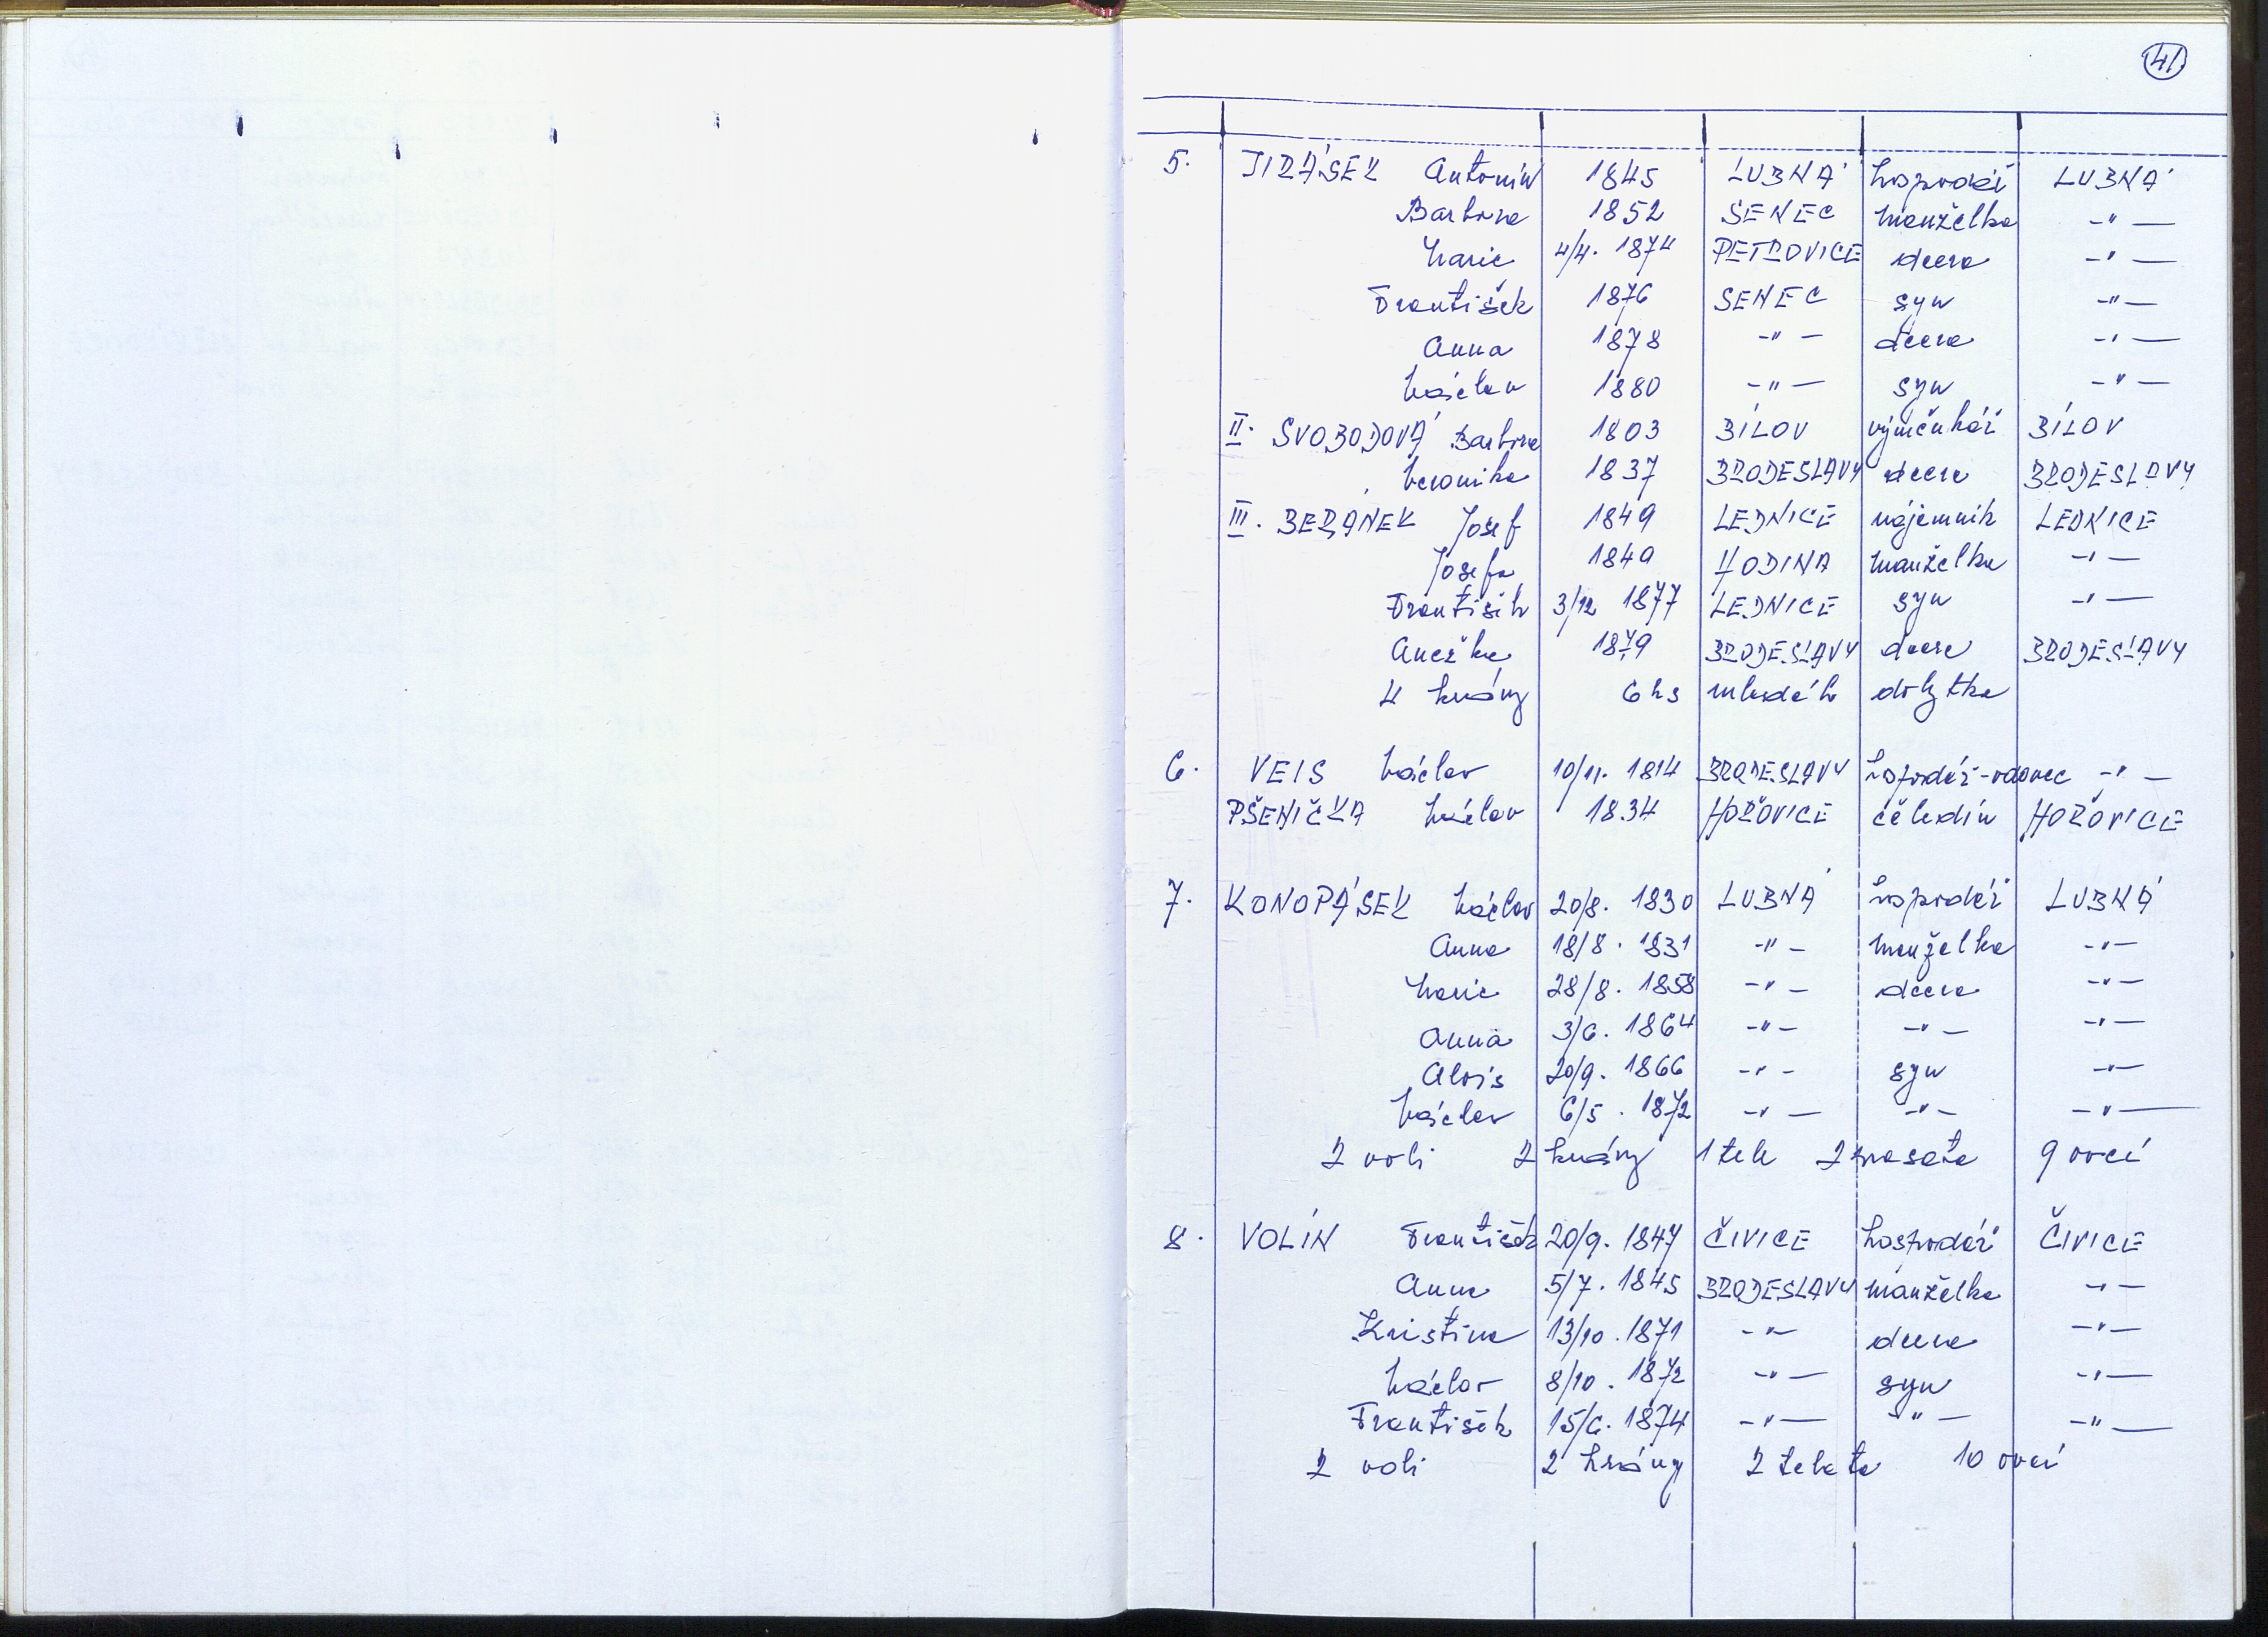 41
5. JIRÁSEK Antonín 1845 LUBNÁ hospodář LUBNÁ
Barbora 1852 SENEC manželka -"-
Marie 4/4. 1874 PETROVICE dcera -"-
František 1876 SENEC syn -"-
Anna 1878 -"- dcera -"-
Václav 1880 -"- syn -"-
II. SVOBODOVÁ Barbora 1803 BÍLOV výměnkář BÍLOV
Veronika 1837 BRODESLAVY dcera BRODESLAVY
III. BERÁNEK Josef 1849 LEDNICE nájemník LEDNICE
Josefa 1849 HODINA manželka -"-
František 3/12 1877 LEDNICE syn -"-
Anežka 1879 BRODESLAVY dcera BRODESLAVY
4 krávy 6 ks mladého dobytka
6. VEIS Václav 10/11. 1814 BRODESLAVY hospodář-vdovec -"-
PŠENIČKA Václav 1834 HOŘOVICE čeledín HOŘOVICE
7. KONOPÁSEK Václav 20/8. 1830 LUBNÁ hospodář LUBNÁ
Anna 18/8. 1831 -"- manželka -"-
Marie 28/8. 1858 -"- dcera -"-
Anna 3/6. 1864 -"- -"- -"-
Alois 20/9. 1866 -"- syn -"-
Václav 6/5. 1872 -"- -"- -"-
2 voli 2 krávy 1 tele 2 prasata 9 ovcí
8. VOLÍN František 20/9. 1847 ČIVICE hospodář ČIVICE
Anna 5/7. 1845 BRODESLAVY manželka -"-
Kristina 13/10. 1871 -"- dcera -"-
Václav 8/10. 1872 -"- syn -"-
František 15/6. 1874 -"- -"- -"-
2 voli 2 krávy 2 telata 10 ovcí